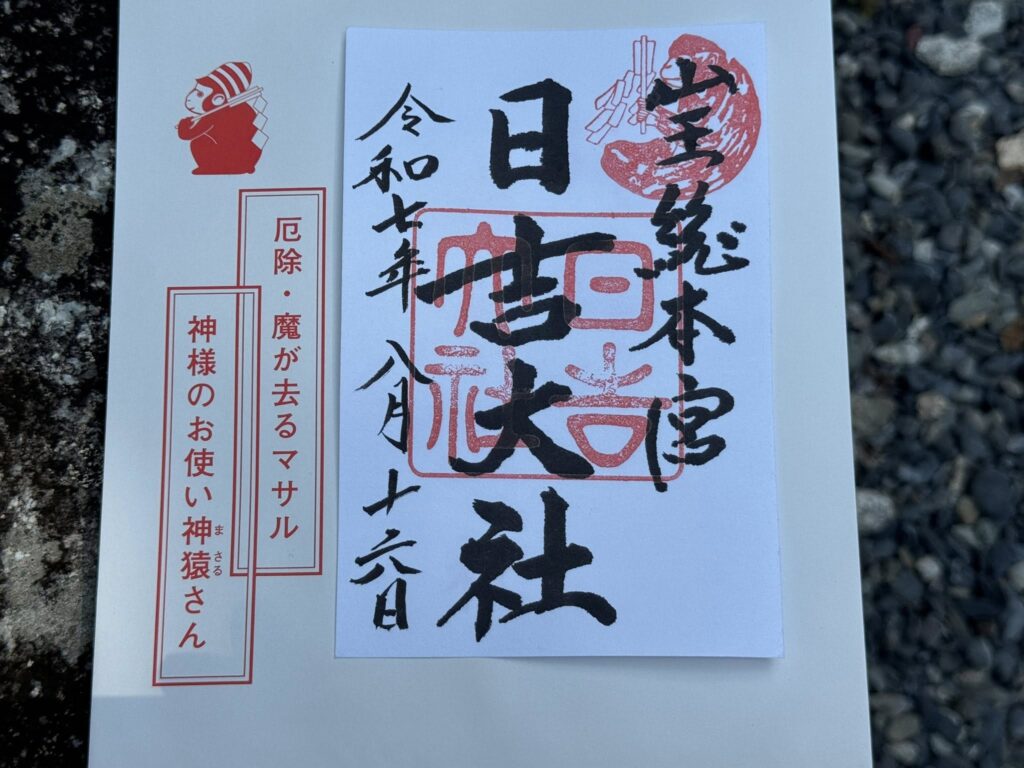 山王総本宮
日吉大社
令和七年八月十六日
日吉
大社
厄除・魔が去るマサル
神様のお使い神猿さん
まさる